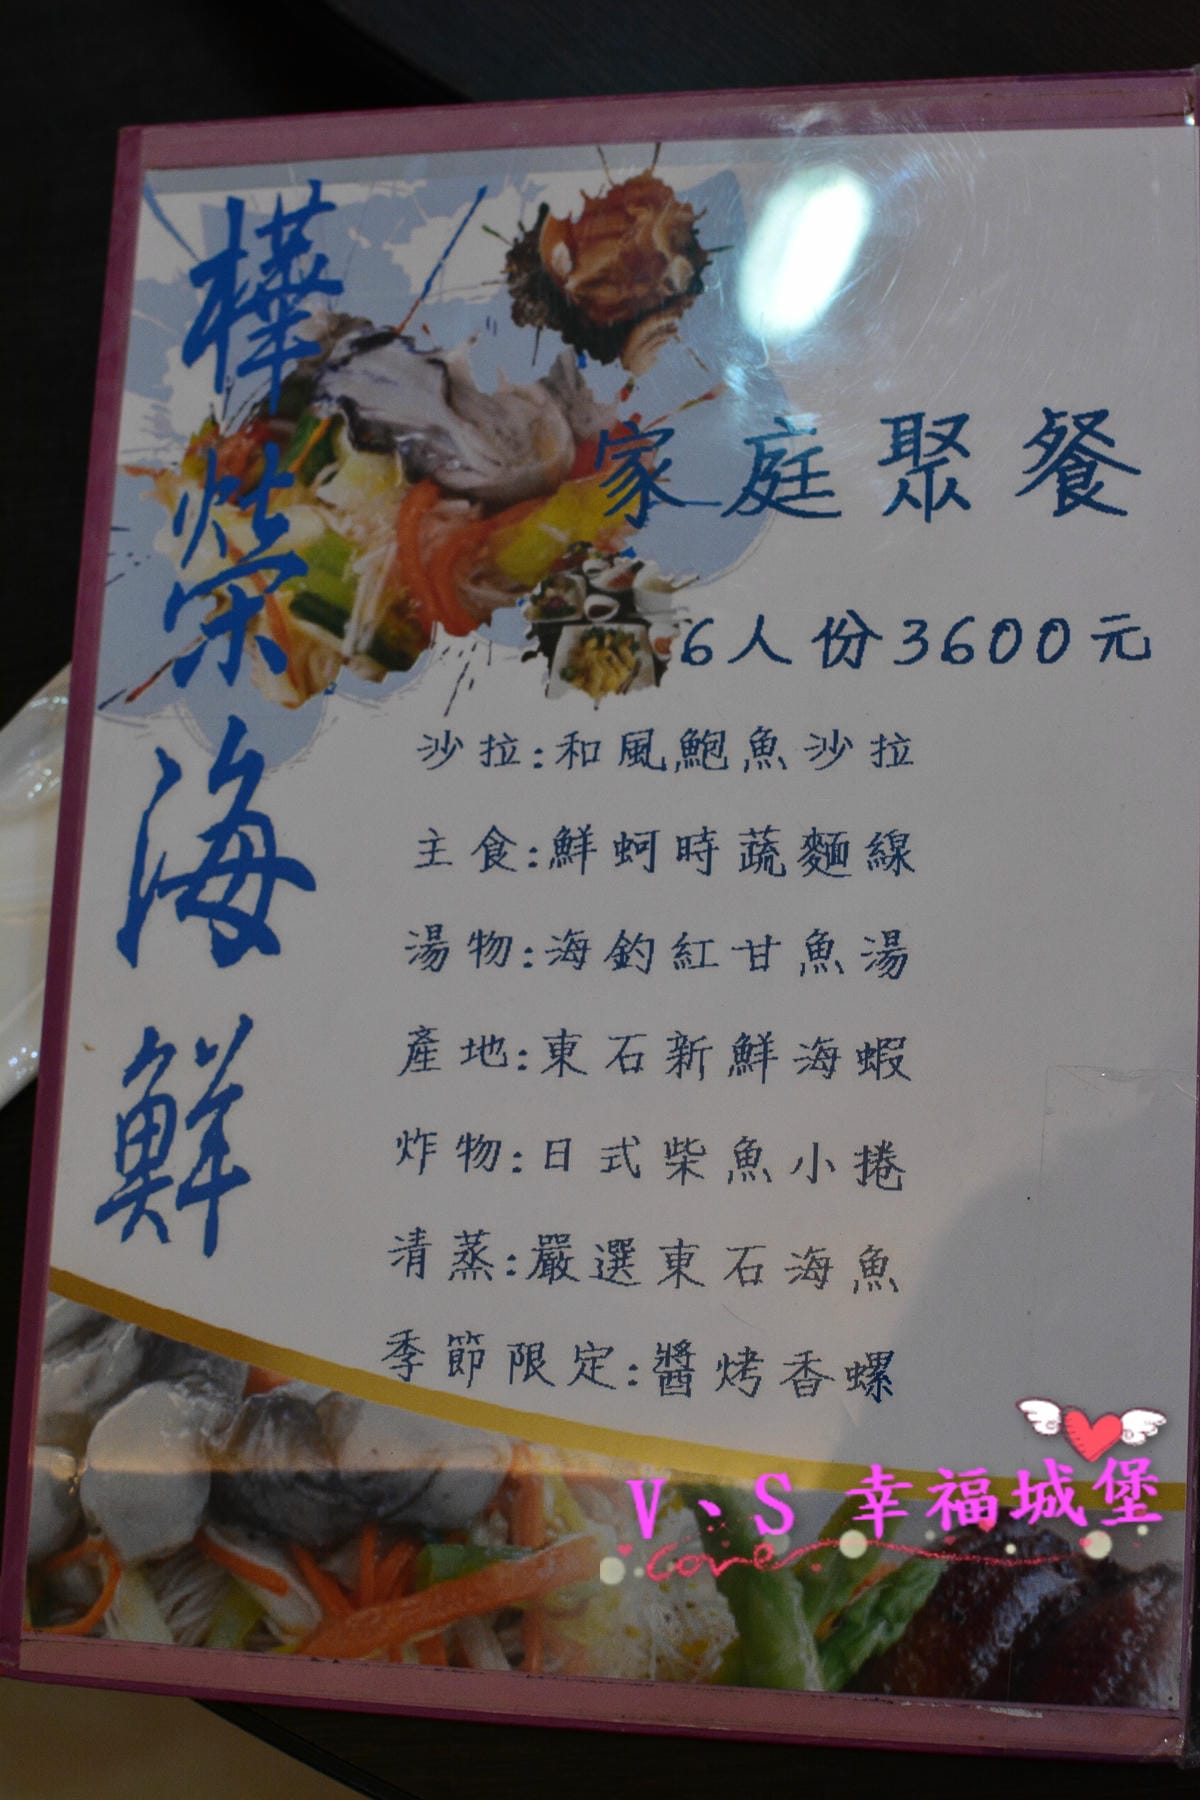 樺榮海鮮
家庭聚餐
6人份3600元
沙拉:和風鮑魚沙拉
主食:鮮蚵時蔬麵線
湯物:海釣紅甘魚湯
產地:東石新鮮海蝦
炸物:日式柴魚小捲
清蒸:嚴選東石海魚
季節限定:醬烤香螺
V、S 幸福城堡
Love